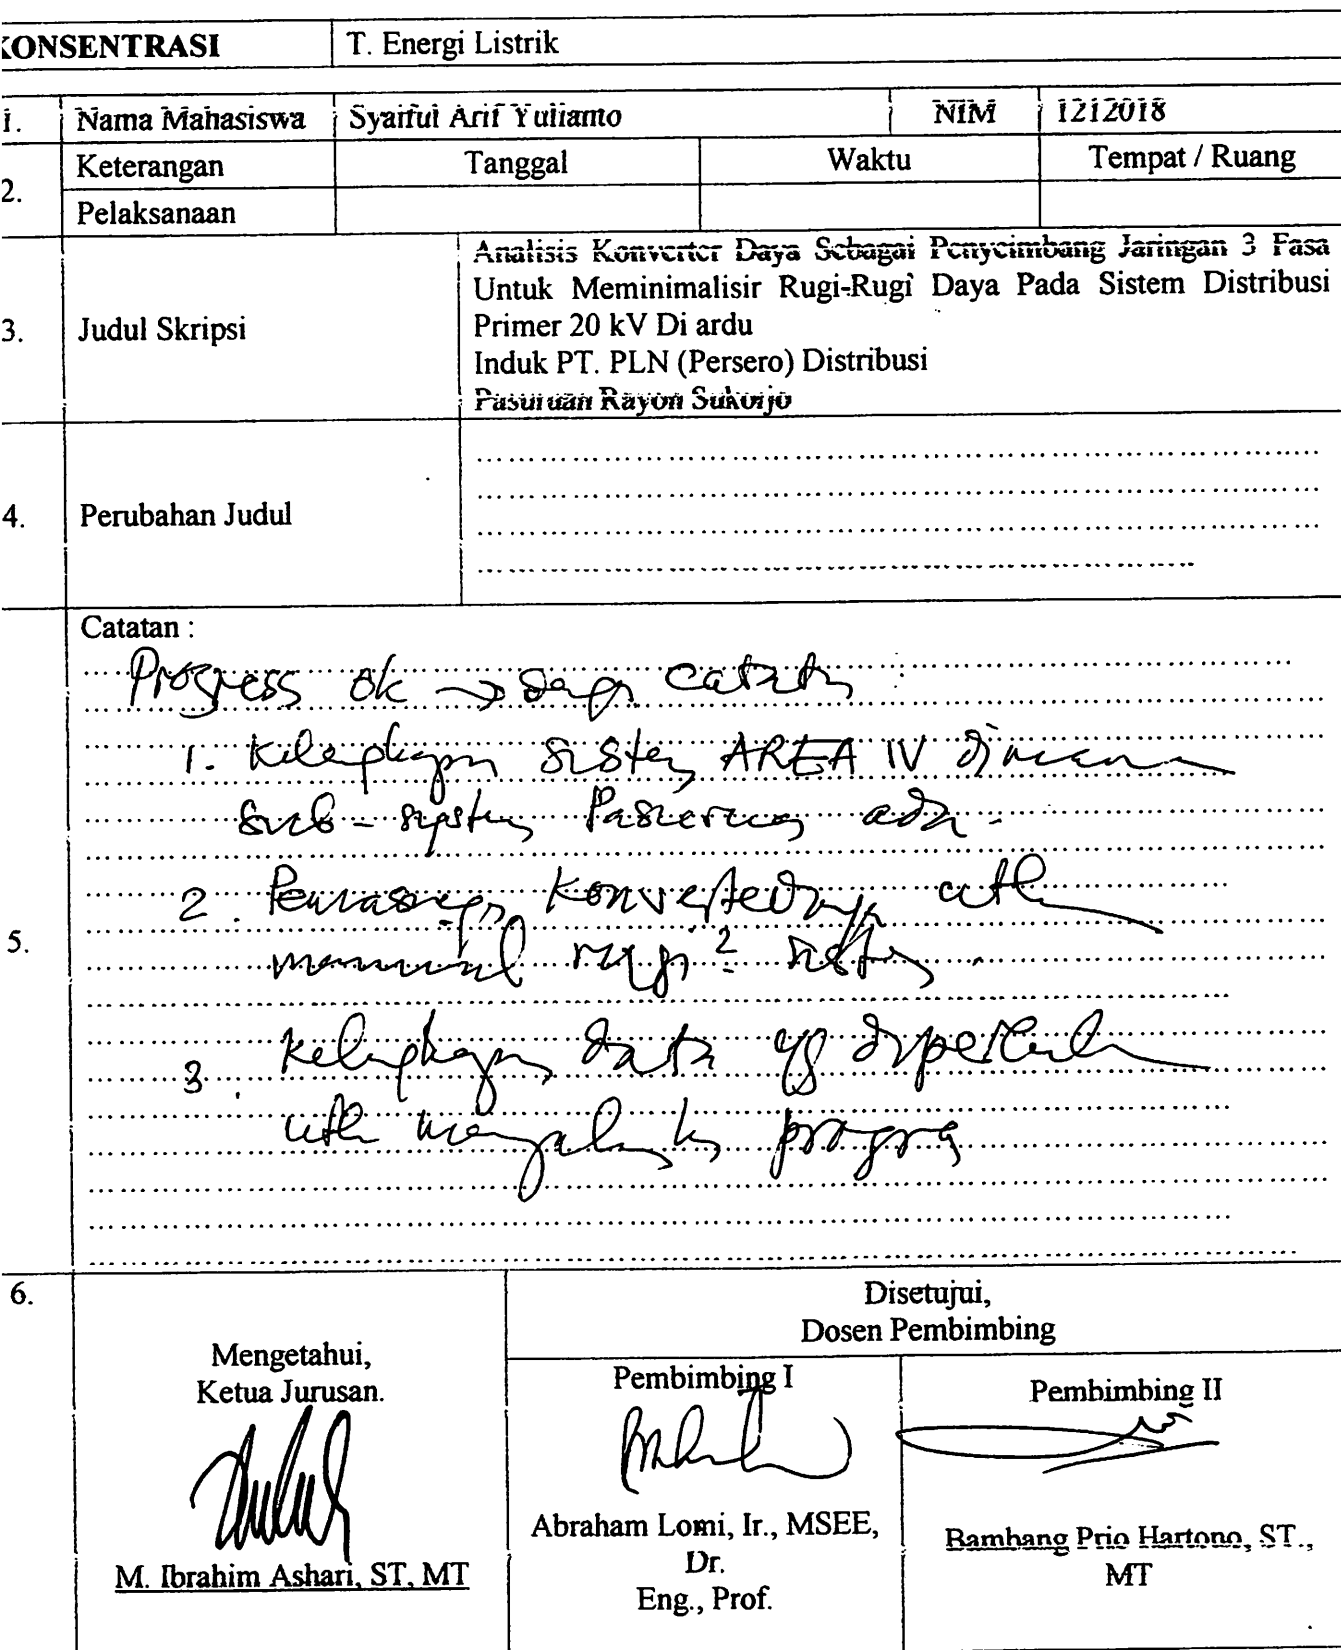 KONSENTRASI T. Energi Listrik
1. Nama Mahasiswa Syaiful Arif Yulianto NIM 1212018
2. Keterangan Tanggal Waktu Tempat / Ruang
Pelaksanaan
3. Judul Skripsi
Analisis Konverter Daya Sebagai Penyeimbang Jaringan 3 Fasa
Untuk Meminimalisir Rugi-Rugi Daya Pada Sistem Distribusi
Primer 20 kV Di ardu
Induk PT. PLN (Persero) Distribusi
Pasuruan Rayon Sukorjo
4. Perubahan Judul
5. Catatan :
Progress ok → catatan :
1. Kelengkapan sistem AREA IV dimana
Sub-system Pasuruan ada.
2. Konverter daya utk
rugi² sistem.
3. Kelengkapan data yg diperlukan
utk program
6. Mengetahui,
Ketua Jurusan.
M. Ibrahim Ashari, ST, MT
Disetujui,
Dosen Pembimbing
Pembimbing I
Abraham Lomi, Ir., MSEE,
Dr.
Eng., Prof.
Pembimbing II
Bambang Prio Hartono, ST.,
MT